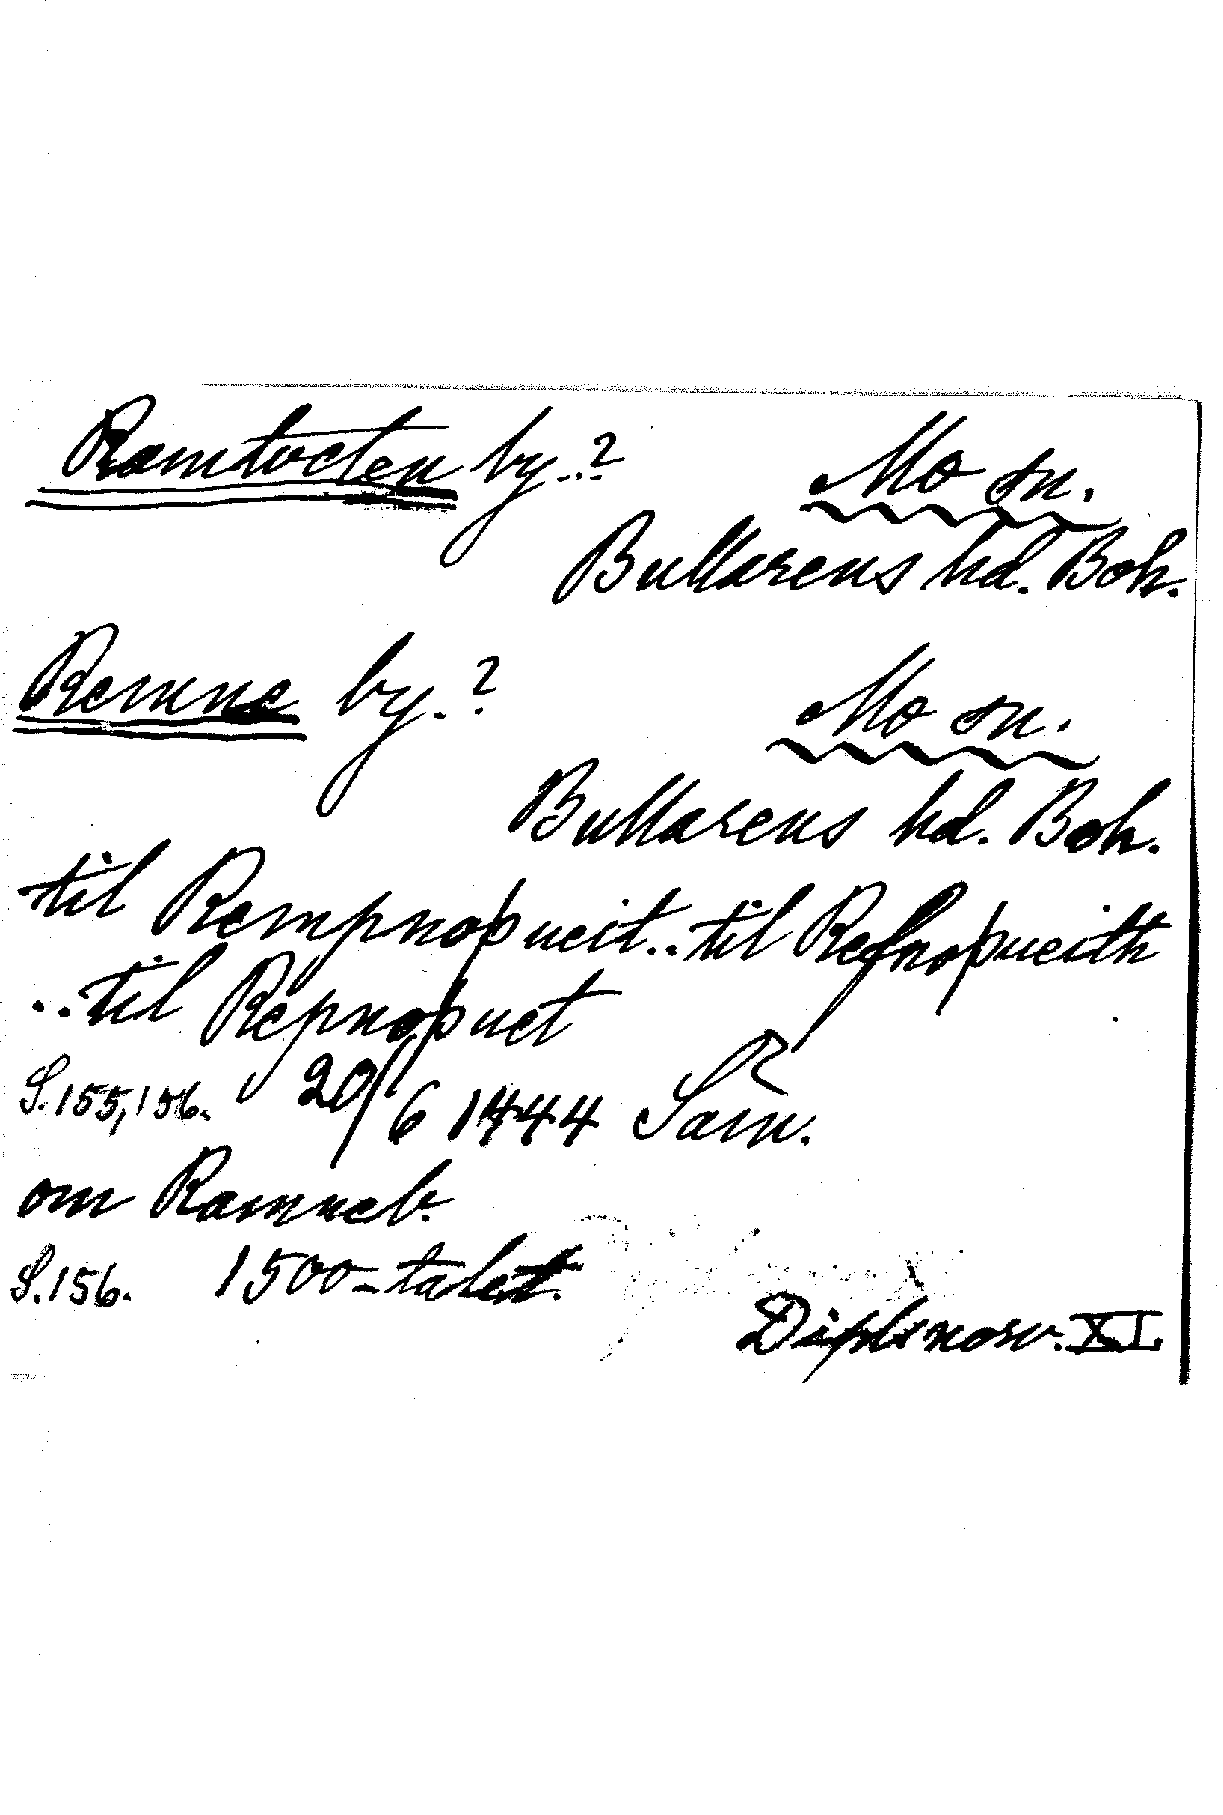 Ramtveten by..? Mo sn.
Bullarens hd. Boh.
Remne by.? Mo sn.
Bullarens hd. Boh.
til Rempnoþueit..til Refnoþueith
..til Repnoþuet
S.155,156. 20/6 1444 Sam.
om Ramneb.
S.156. 1500-talet.
Dipl. norv. XI.